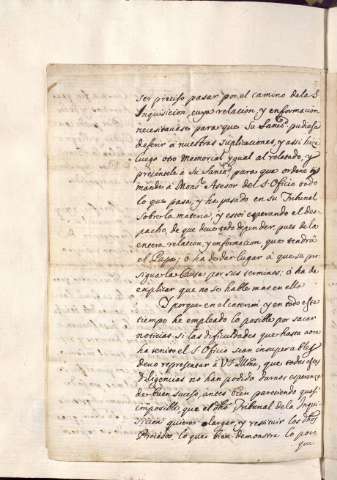 ser preciso pasar por el camino de la S.
Inquisicion, cuya relacion, y enformacion
necesitauase para que Su Santd. pudiese
deferir a nuestras suplicaciones, y assi hize
luego otro Memorial ygual al relatado, y
presentele a Su Santd. para que ordene y
mande a Monsr. Asesor del S. Oficio todo
lo que pasa, y ha pasado en su Tribunal
Sobre la materia, y estoi esperando el des
pacho, de que dicho todo depender, pues de la
entera relacion, y enformacion, que tendrà
el Papa; ò ha de dar lugar à que se pro
sigua la Causa por sus terminos; ò ha de
explicar que no se hable mas en ella
Y porque en el entretanto y en todo este
tiempo he empleado lo posible por sacar
noticias si las dificultades que hasta aora
ha tenido el S. Oficio sean insuperables
deuo representar à VS. Illma, que todas estas
diligencias no han podido darnos esperança
de buen suceso, antes bien pareciendo quasi
imposible, que el dho Tribunal de la Inqui
sicion quiera alargar, y restituir los dhos
Procesos, lo que bien demuestra lo poco
que